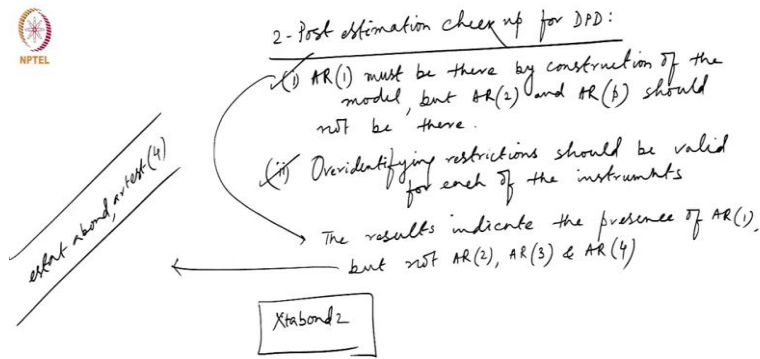 NPTEL
2-Post estimation check up for DPD:
(i) AR(1) must be there by construction of the
model, but AR(2) and AR(p) should
not be there.
(ii) Overidentifying restrictions should be valid
for each of the instrumnts
The results indicate the presence of AR(1),
but not AR(2), AR(3) & AR(4)
estat abond, artest(4)
Xtabond2